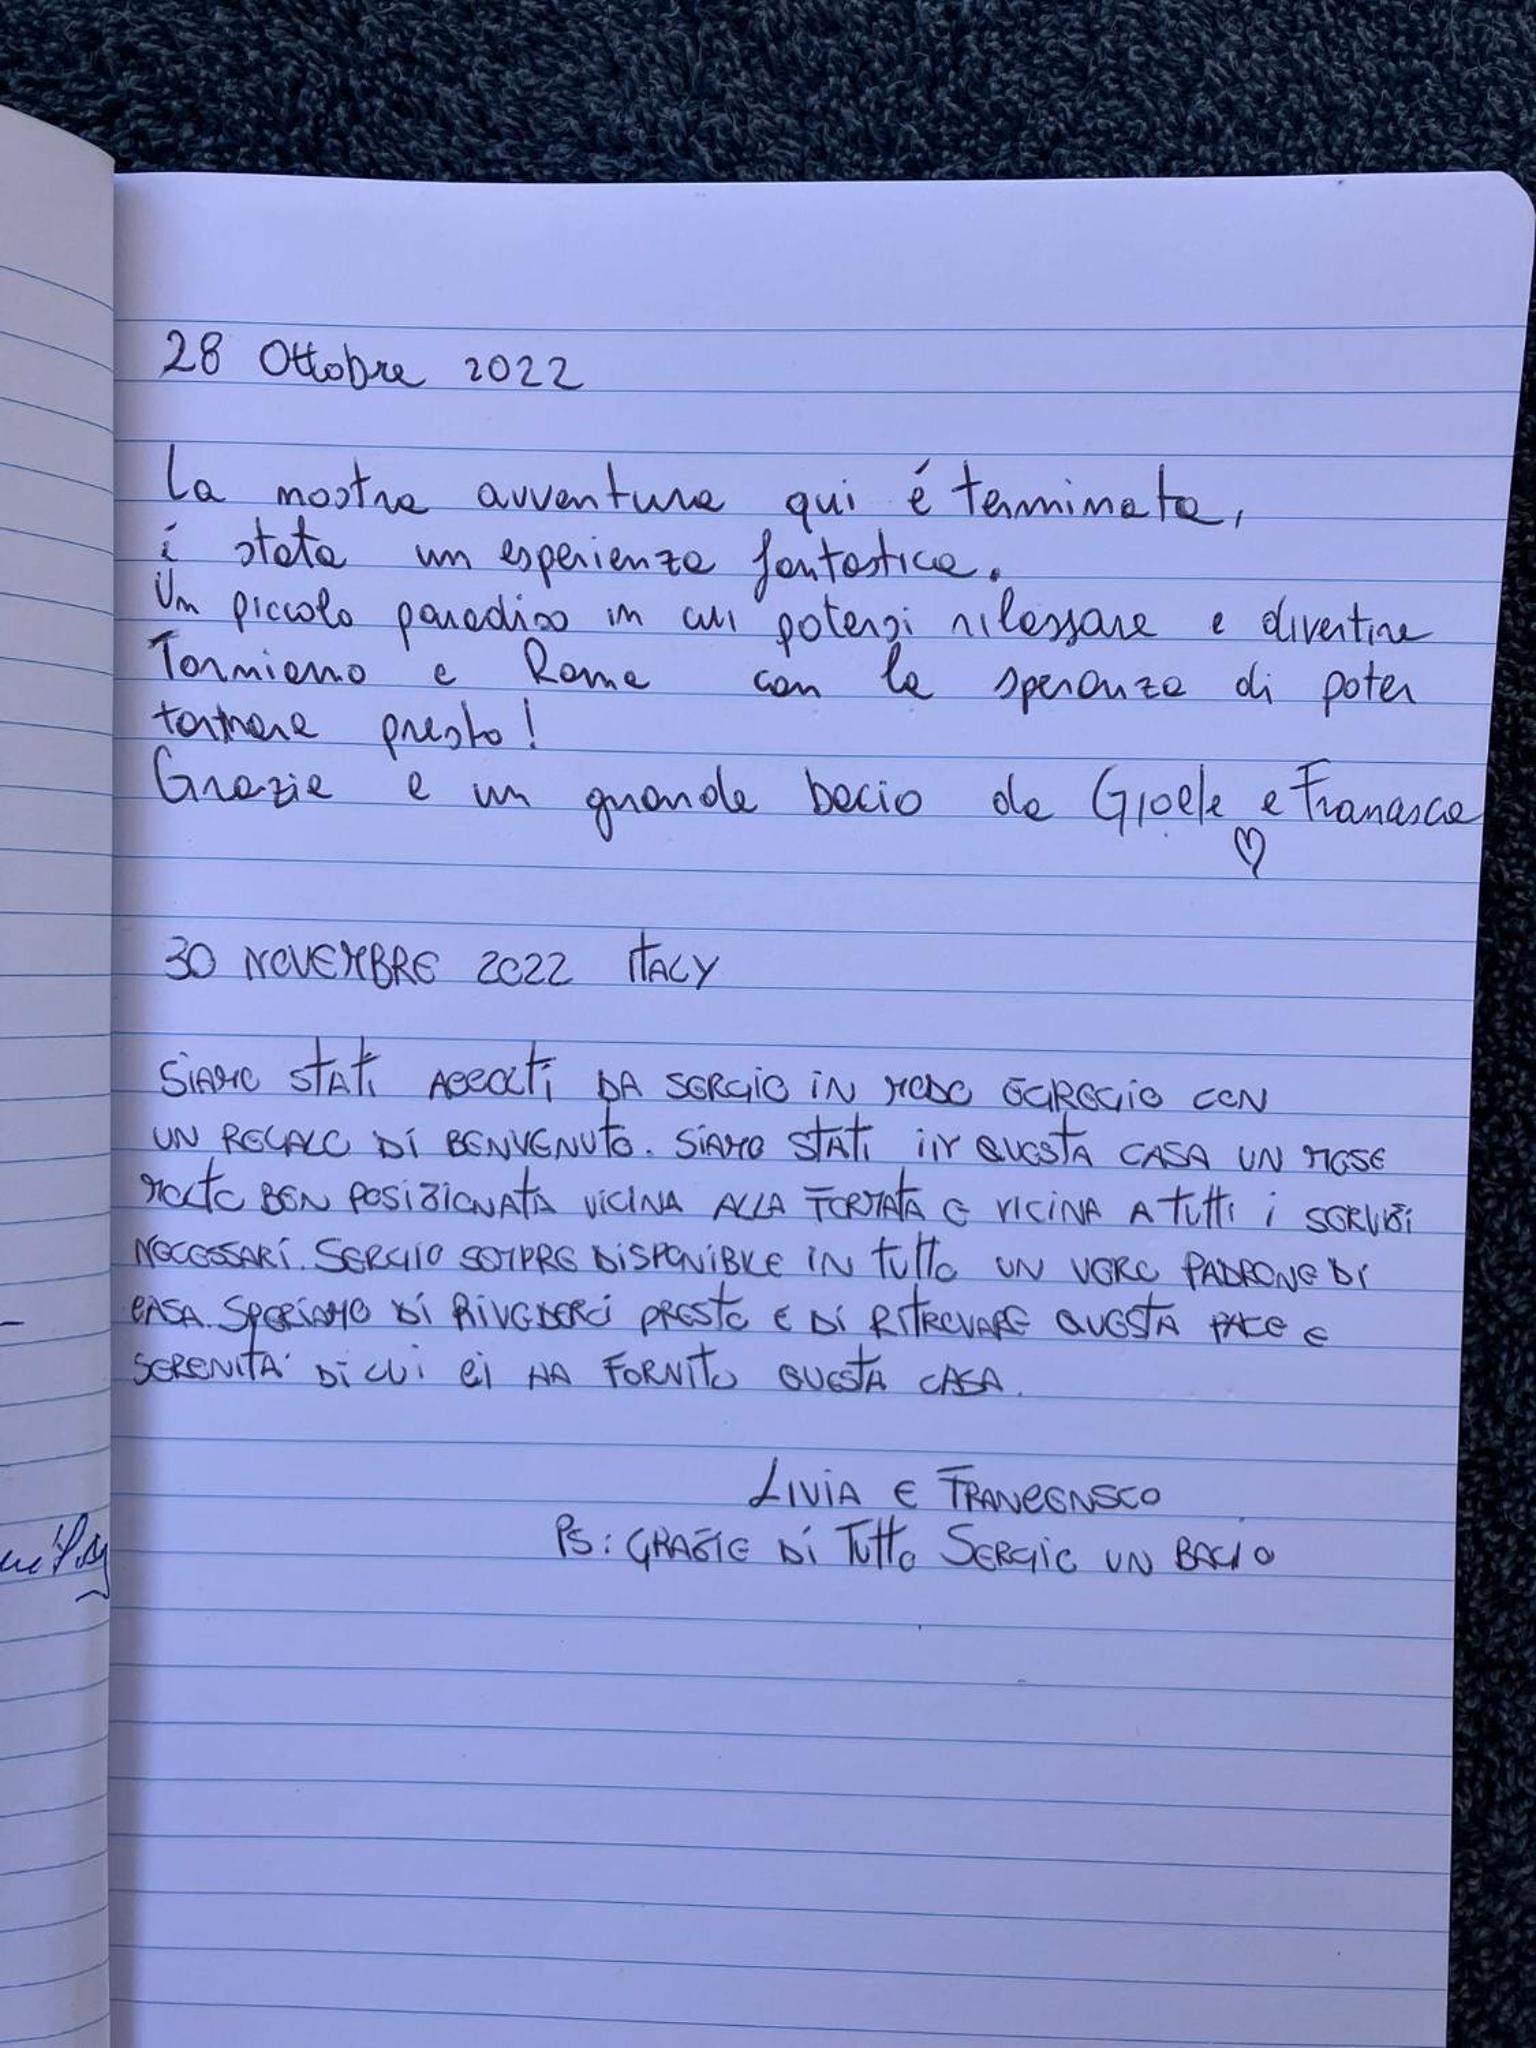 28 Ottobre 2022
La nostra avventura qui é terminata,
é stata un esperienza fantastica.
Un piccolo paradiso in cui potersi rilassare e divertire
Torniamo a Roma con la speranza di poter
tornare presto!
Grazie e un grande bacio da Gioele e Francesca
♡
30 NOVEMBRE 2022 ITALY
SIAMO STATI ACCOLTI DA SERGIO IN MODO EGREGIO CON
UN REGALO DI BENVENUTO. SIAMO STATI IN QUESTA CASA UN MESE
MOLTO BEN POSIZIONATA VICINA ALLA FERMATA E VICINA A TUTTI I SERVIZI
NECESSARI. SERGIO SEMPRE DISPONIBILE IN TUTTO UN VERO PADRONE DI
CASA. SPERIAMO DI RIVEDERCI PRESTO E DI RITROVARE QUESTA PACE E
SERENITA' DI CUI CI HA FORNITO QUESTA CASA.
LIVIA E FRANCENSCO
PS: GRAZIE DI TUTTO SERGIO UN BACIO